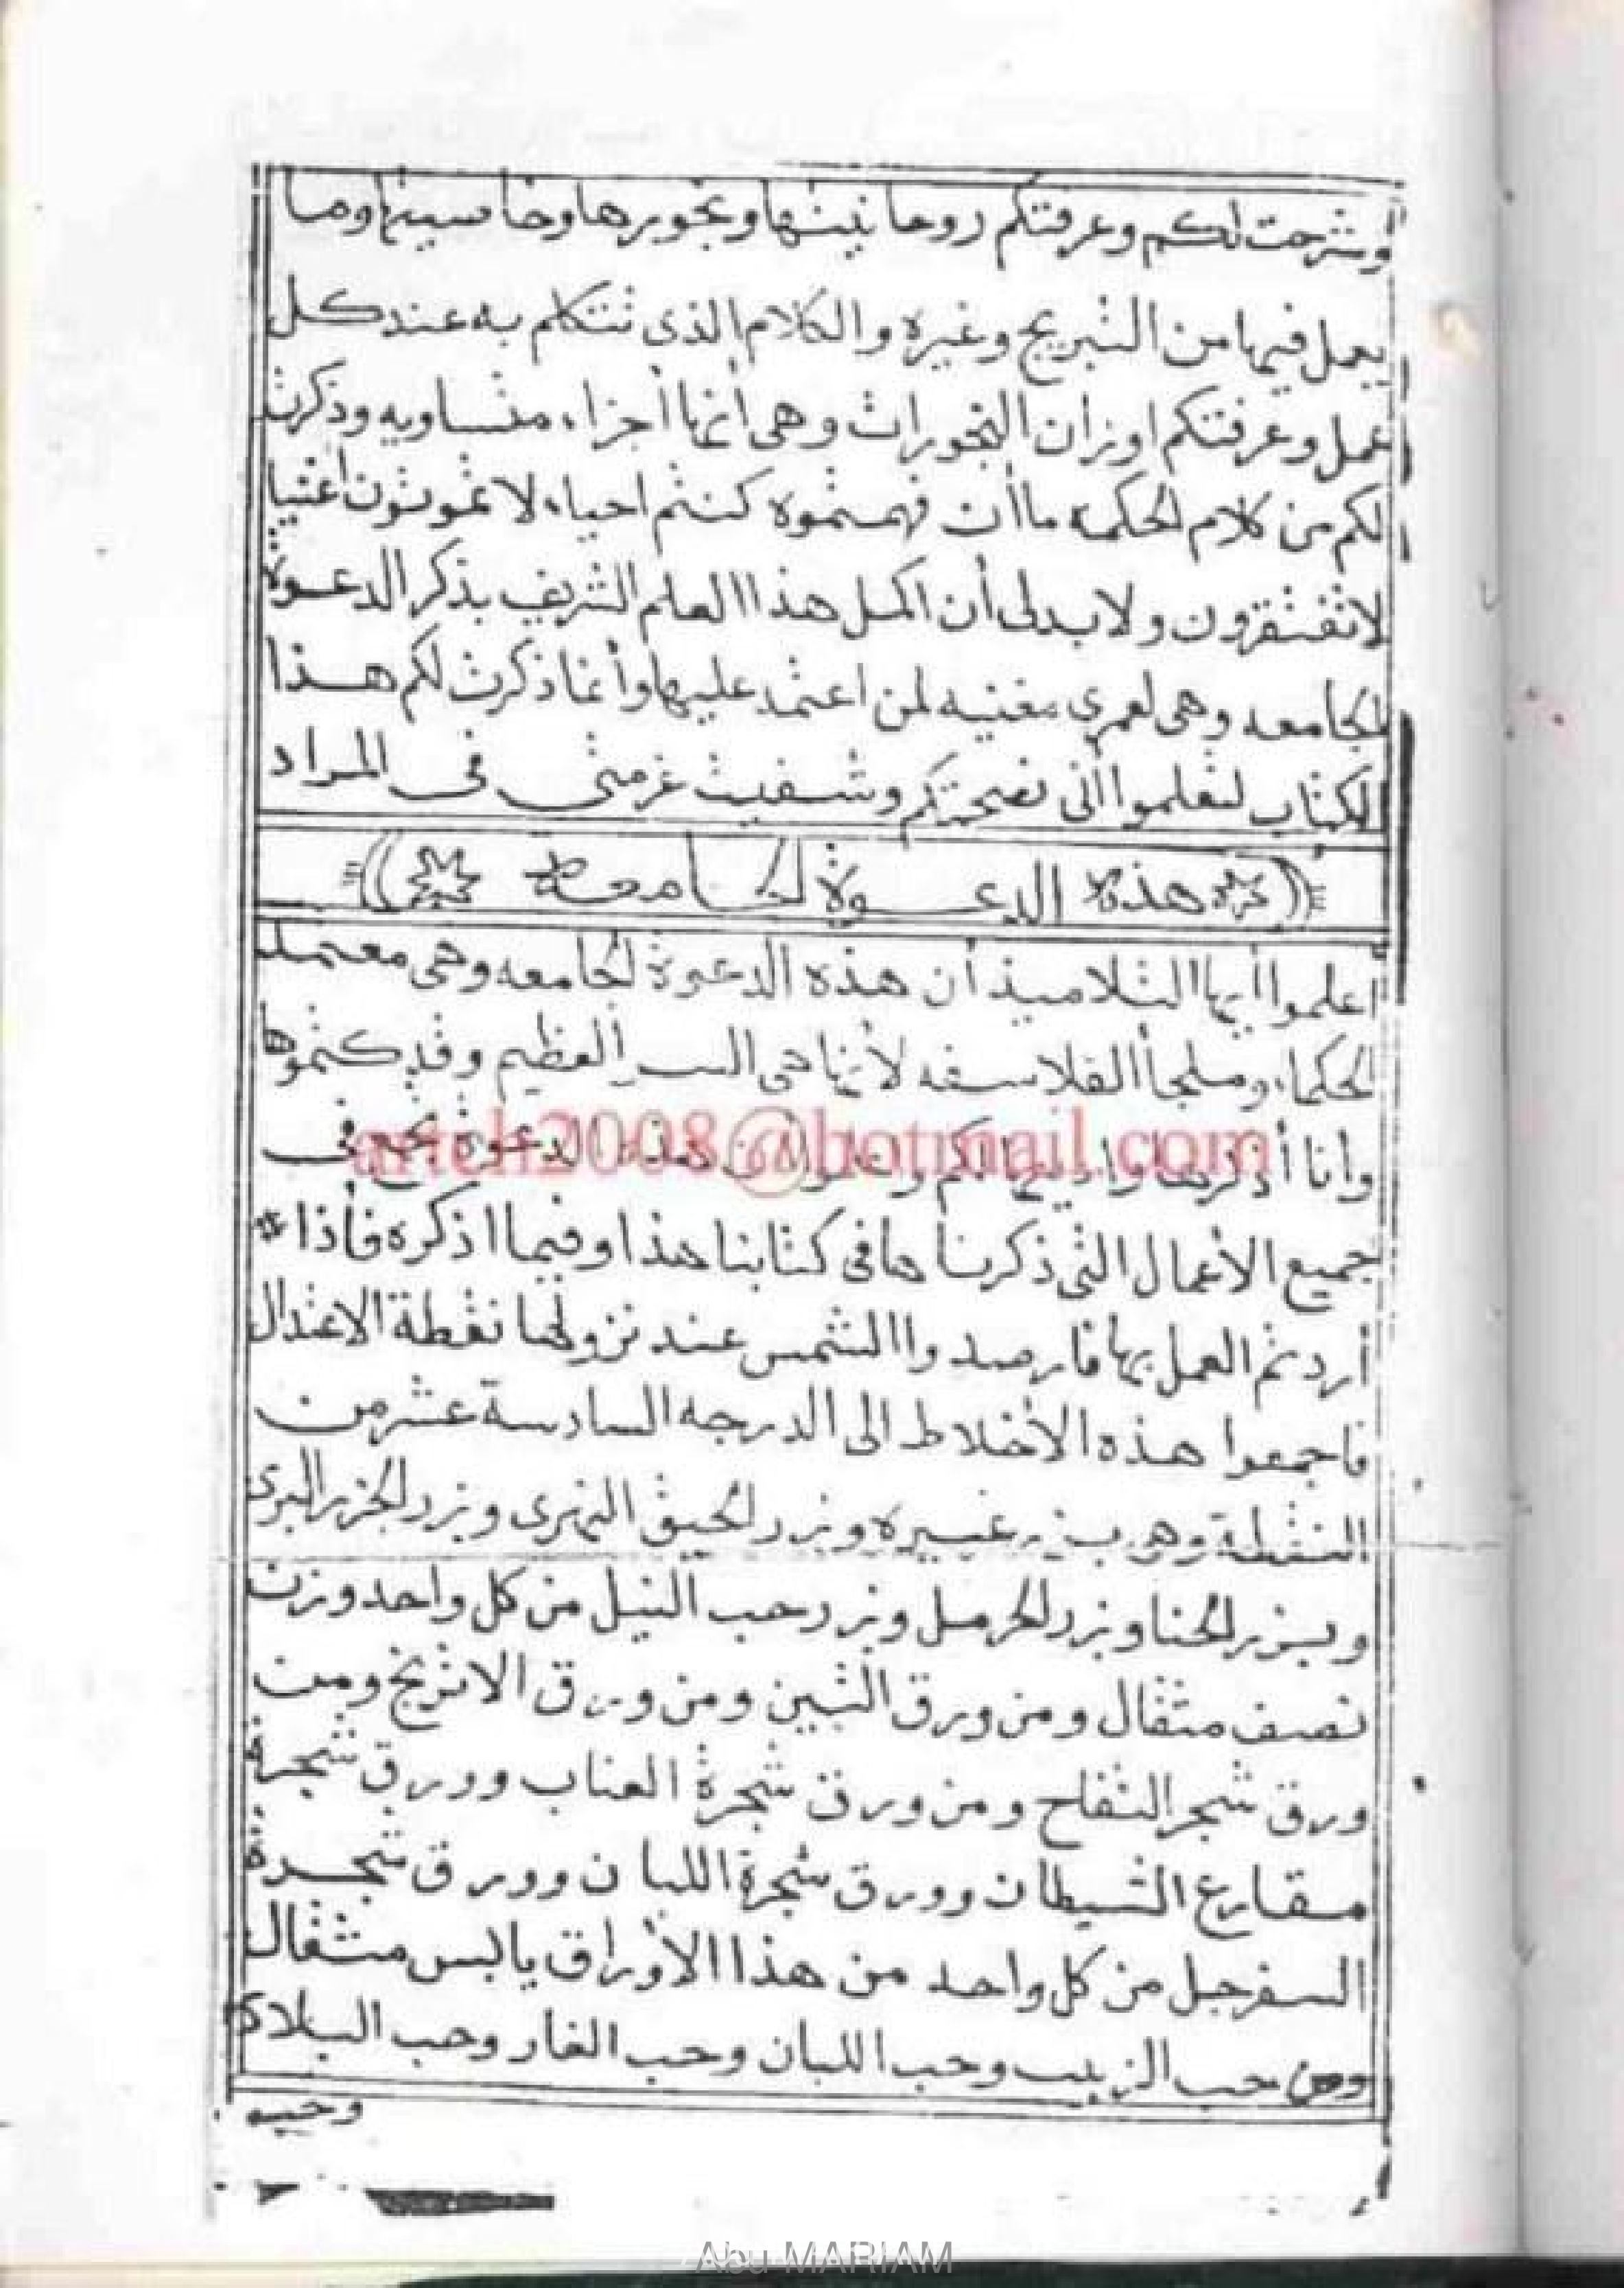 وشرحت لكم وعرفتكم روحانيتها وبخورها وخاسيتها وما
يعمل فيها من التبريج وغيره والكلام الذى نتكلم به عند كل
عمل وعرفتكم اوزان البخورات وهى أنها أجزاء متساويه وذكرت
لكم من كلام الحكمه ماأن فهمتموه كنتم احياء لا تموتون اغنيا
لاتفتقرون ولا بدلى أن اكمل هذا العلم الشريف بذكر الدعوة
الجامعه وهى لعمرى مغنيه لمن اعتمد عليها وأنما ذكرت لكم هذا
الكتاب لتعلموا أنى نصحتكم وشفيت غرمتى فى المراد
هذه الدعوة الجامعة
أعلموا أيها التلاميذ أن هذه الدعوة الجامعه وهى معتمد
الحكماء وملجأ الفلاسفه لأنها هى السر العظيم وقد كتموها
وأنا أذكرها لكم هذه الدعوة تنجح فى
جميع الأعمال التى ذكرناها فى كتابنا هذا وفيما اذكره فأذا *
أردتم العمل بها فارصدوا الشمس عند نزولها نقطة الاعتدال
فاجمعوا هذه الأخلاط الى الدرجه السادسة عشر من
النقطة وهى بزر وبزر الحبق النهرى وبزر الجزر البرى
وبزر الحنا وبزر الحرمل وبزر حب النيل من كل واحد وزن
نصف مثقال ومن ورق التين ومن ورق الاترنج ومن
ورق شجر التفاح ومن ورق شجرة العناب وورق شجرة
مقارع الشيطان وورق شجرة اللبان وورق شجرة
السفرجل من كل واحد من هذا الأوراق يابس مثقال
ومن حب الزبيب وحب اللبان وحب الغار وحب البلادر
وحب
arteh2008@hotmail.com
Abu MARIAM